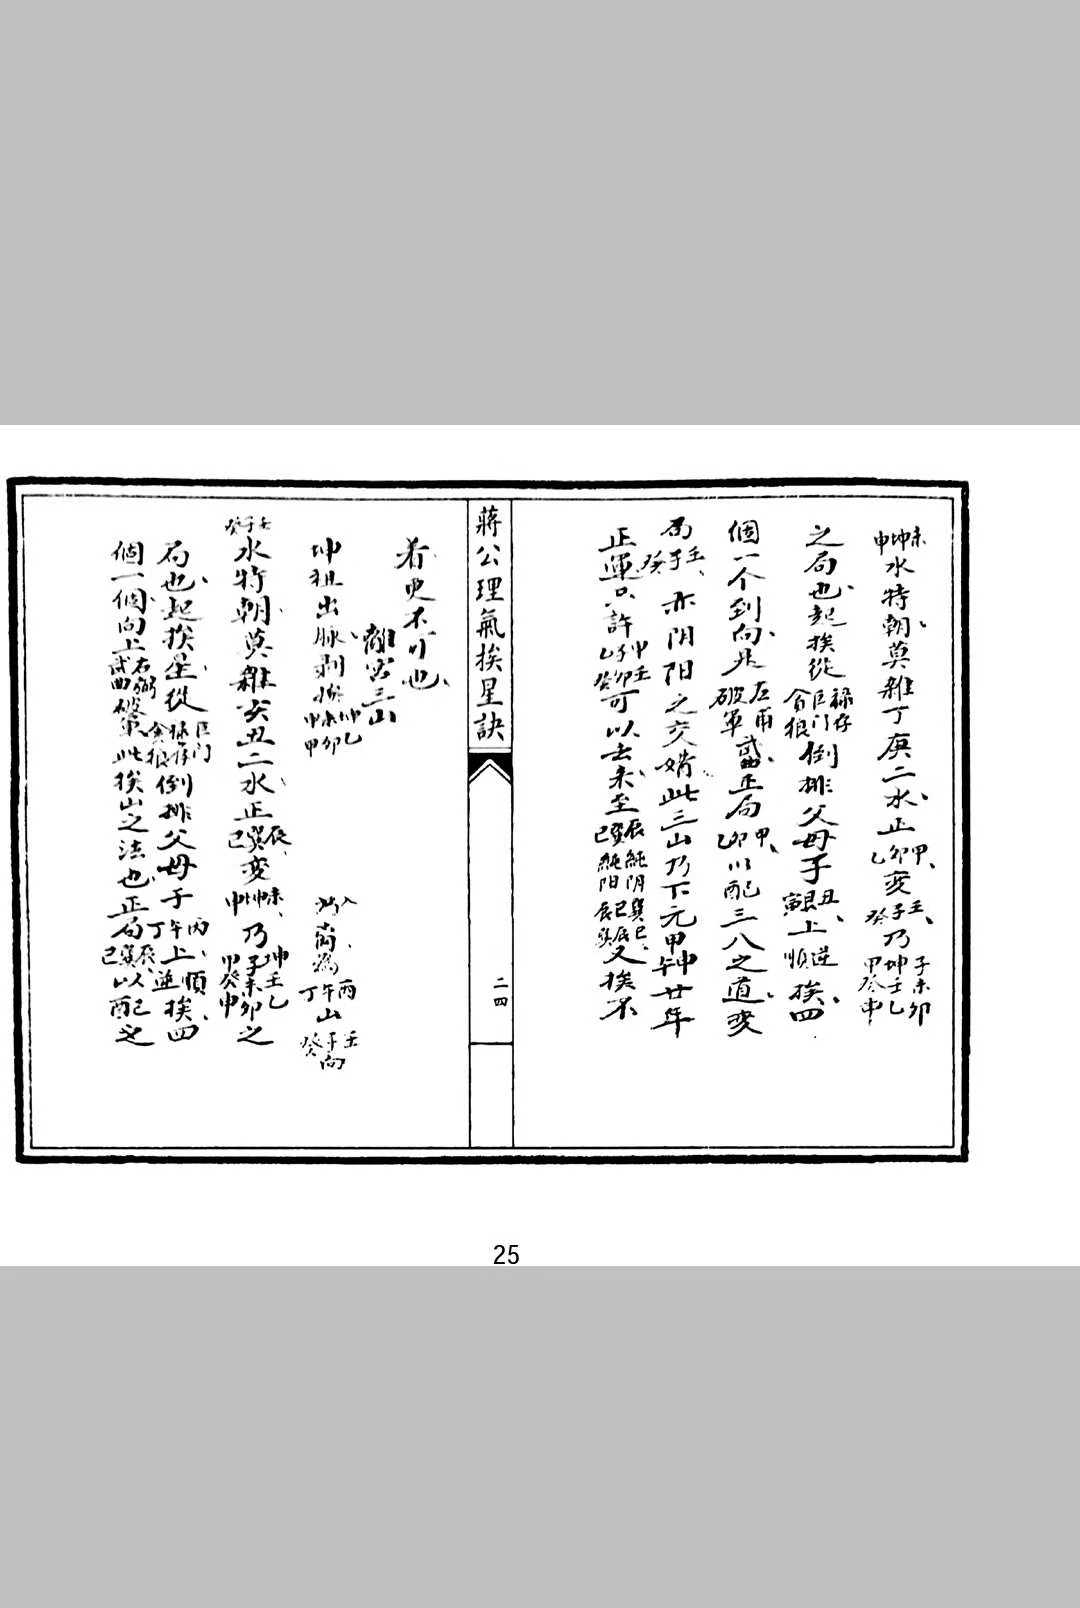 未坤申水特朝莫雜丁庚二水正甲卯乙变壬子癸乃子未卯坤壬乙甲癸申
之局也起挨從祿存巨门貪狼倒排父母子丑艮寅上逆順挨四
個一个到向是左甫破軍武曲正局甲卯乙以配三八之道变
局壬子癸亦阴阳之交媾此三山乃下元甲申廿年
正運只許坤壬乙子卯癸可以去来至辰巽巳純阴純阳巽巳辰又挨不
蔣公理氣挨星訣
二四
着更不可也
離宮三山
坤狙出脉剥換坤乙未卯申甲 為丙午丁山壬子癸向
壬子癸水特朝莫雜亥丑二水正辰巽巳变未坤申乃坤壬乙子未卯甲癸申之
局也起挨星從巨门祿存貪狼倒排父母子丙午丁上順逆挨四
個一個向上右弼武曲破軍此挨山之法也正局辰巽巳以配之
25